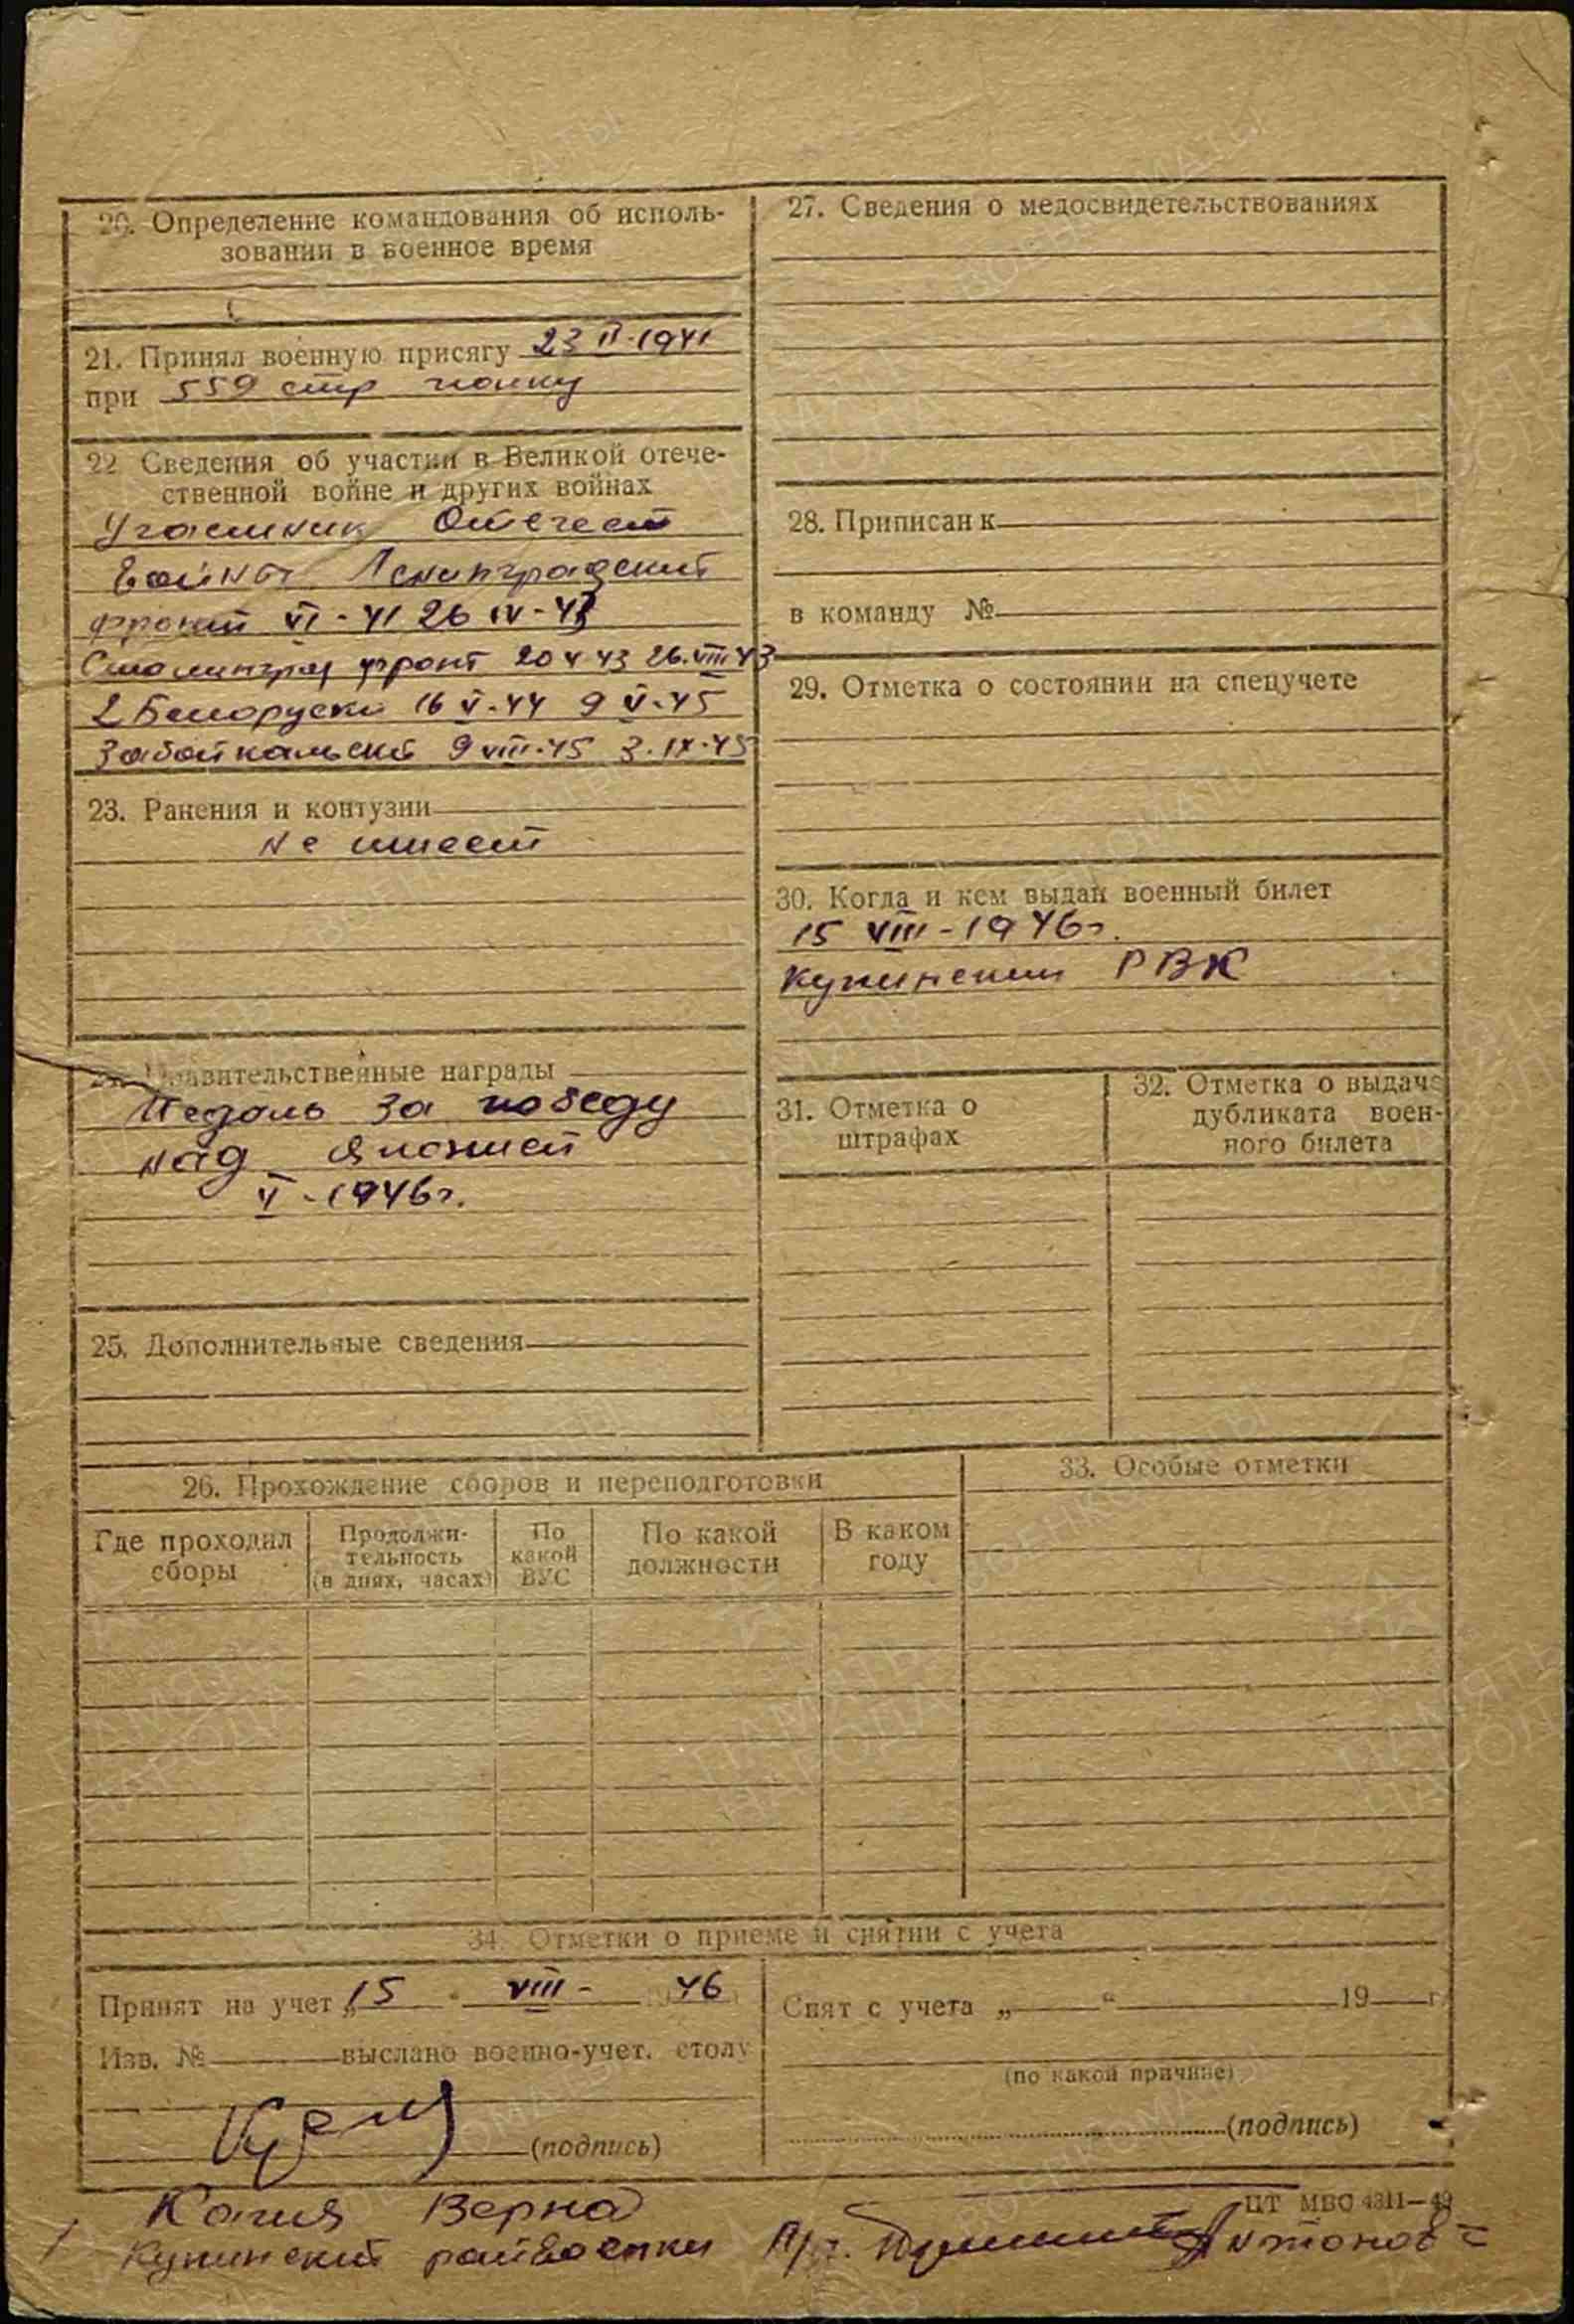 20. Определение командования об исполь-
зовании в военное время
21. Принял военную присягу 23 II-1941
при 559 стр полку
22 Сведения об участии в Великой отече-
ственной войне и других войнах
Участник Отечест
войны Ленинградский
фронт VI-41 26 IV-43
Сталинград фронт 20 V 43 26.VIII 43
2 Белоруски 16 V-44 9 V-45
Забайкальский 9 VIII-45 3.IX-45
23. Ранения и контузии
Не имеет
Правительственные награды
Медаль За победу
над Японией
V-1946г.
25. Дополнительные сведения
26. Прохождение сборов и переподготовки
Где проходил
сборы
Продолжи-
тельность
(в днях, часах)
По
какой
ВУС
По какой
должности
В каком
году
27. Сведения о медосвидетельствованиях
28. Приписан к
в команду №
29. Отметка о состоянии на спецучете
30. Когда и кем выдан военный билет
15 VIII-1946г.
Купинским РВК
31. Отметка о
штрафах
32. Отметка о выдаче
дубликата воен-
ного билета
33. Особые отметки
34. Отметки о приеме и снятии с учета
Принят на учет „15 “ VIII- 1946
Изв. № выслано военно-учет. столу
(подпись)
Снят с учета „ “ 19 г.
(по какой причине)
(подпись)
ЦТ МВО 4311—49
Копия Верна
Купинский райвоенком
Антонов
ПАМЯТЬ
НАРОДА
ВОЕНКОМАТЫ